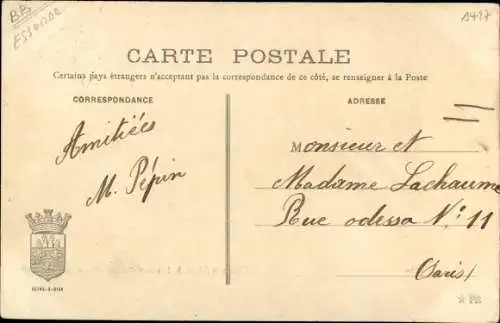 BB
ESSONNE
1427
CARTE POSTALE
Certains pays étrangers n'acceptant pas la correspondance de ce côté, se renseigner à la Poste
CORRESPONDANCE
ADRESSE
Amitiées
M. Pépin
Monsieur et
Madame Lachaume
Rue odessa N° 11
Paris